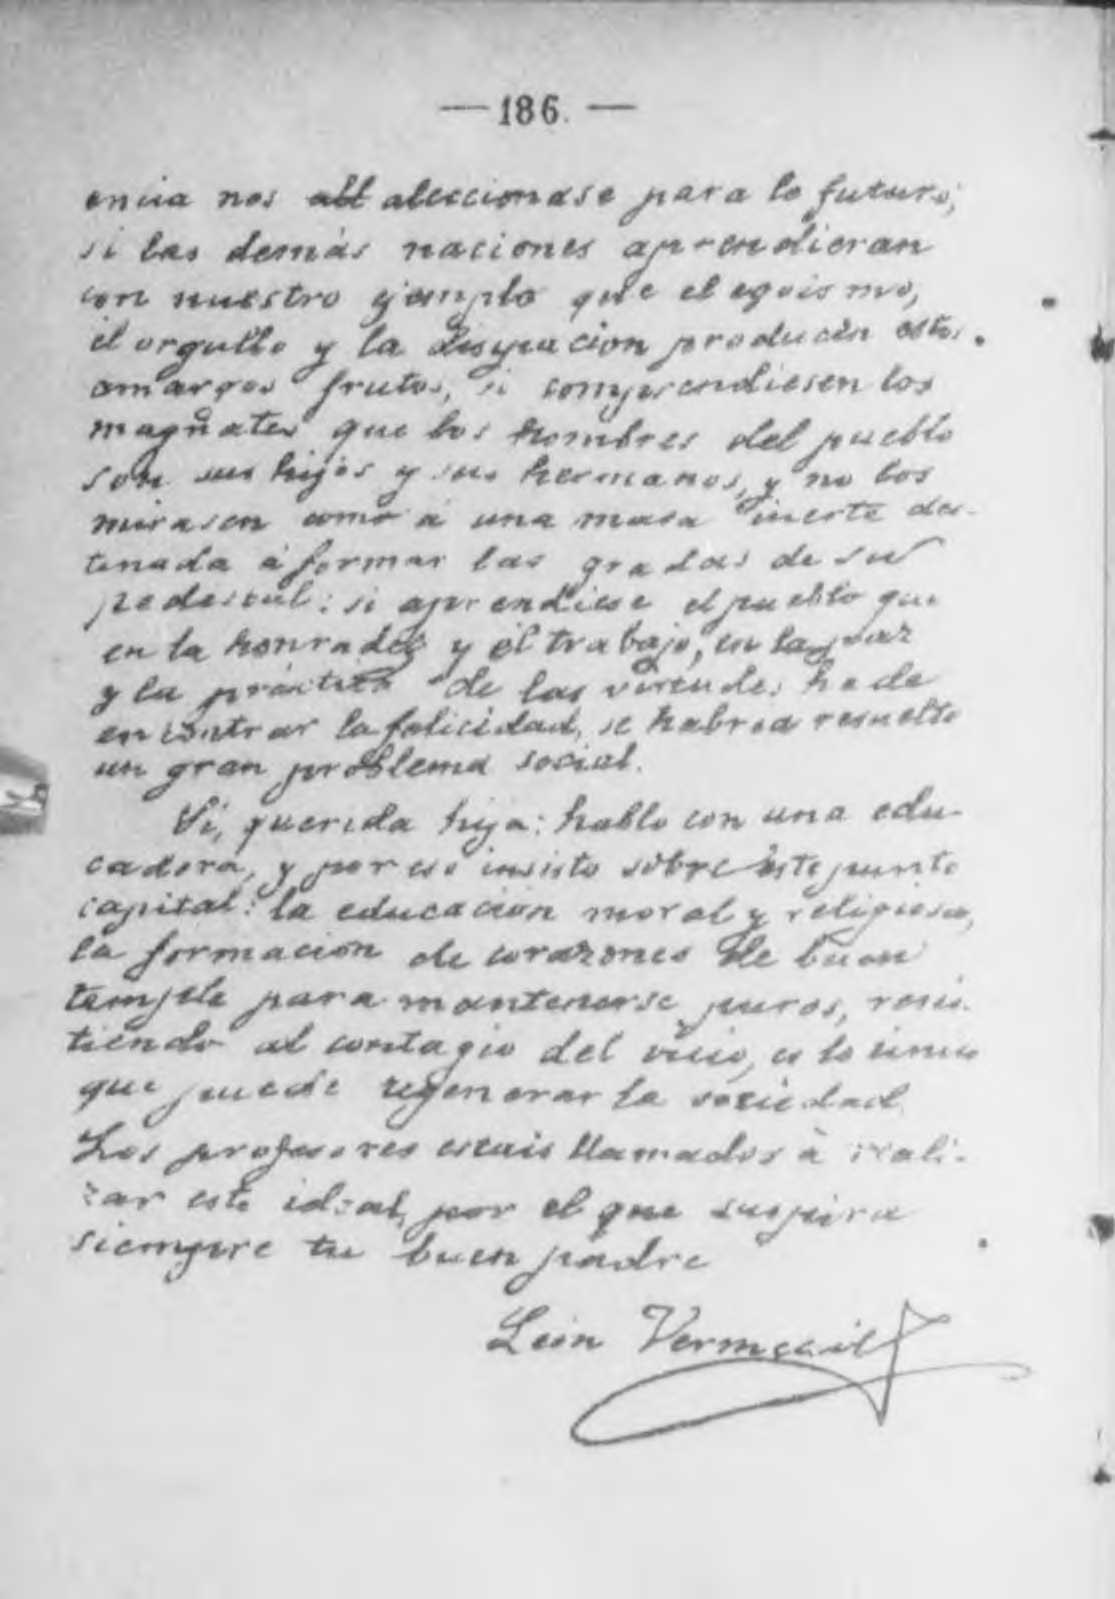 — 186. —
encia nos all aleccionase para lo futuro;
si las demás naciones aprendieran
con nuestro ejemplo que el egoismo,
el orgullo y la disipacion producen estos
amargos frutos, si comprendiesen los
magnates que los hombres del pueblo
son sus hijos y sus hermanos, y no los
mirasen como á una masa inerte des-
tinada á formar las gradas de su
pedestal: si aprendiese el pueblo que
en la honradez y el trabajo, en la paz
y la práctica de las virtudes ha de
encontrar la felicidad, se habria resuelto
un gran problema social.
Si, querida hija: hablo con una edu-
cadora, y por eso insisto sobre este punto
capital: la educación moral y religiosa,
la formacion de corazones de buen
temple para mantenerse puros, resis-
tiendo al contagio del vicio, es lo único
que puede regenerar la sociedad.
Los profesores estais llamados á reali-
zar este ideal, por el que suspira
siempre tu buen padre
León